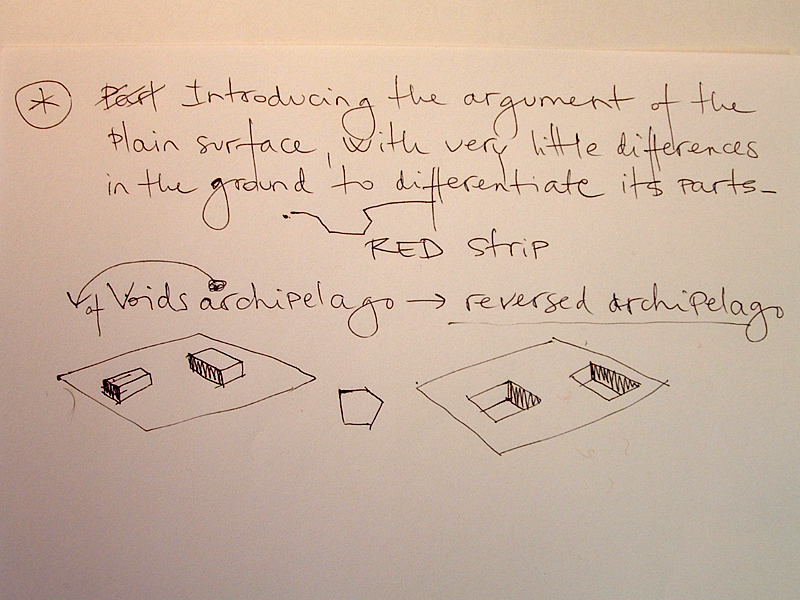 * Introducing the argument of the
plain surface, with very little differences
in the ground to differentiate its parts-
RED Strip
of Voids archipelago → reversed archipelago